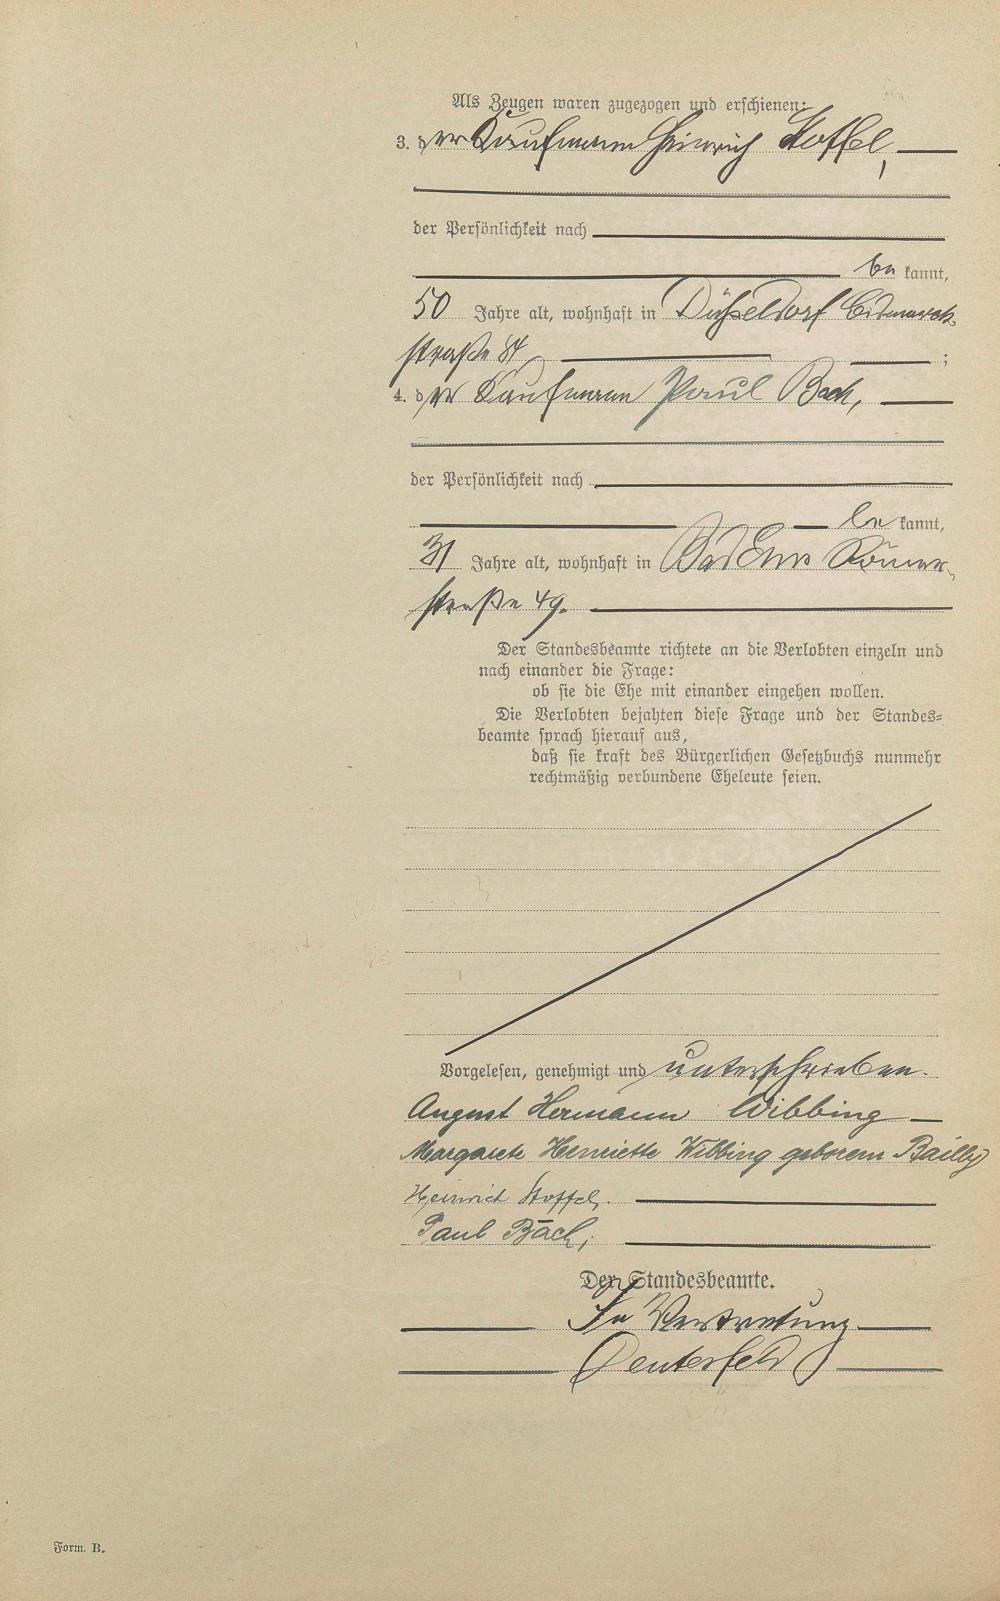 Als Zeugen waren zugezogen und erschienen:
3. der Kaufmann Heinrich Stoffel,
der Persönlichkeit nach
be kannt,
50 Jahre alt, wohnhaft in Düsseldorf Bismarck-
straße 84 ;
4. der Kaufmann Paul Bach,
der Persönlichkeit nach
be kannt,
31 Jahre alt, wohnhaft in Bad Ems Römer-
straße 49.
Der Standesbeamte richtete an die Verlobten einzeln und
nach einander die Frage:
ob sie die Ehe mit einander eingehen wollen.
Die Verlobten bejahten diese Frage und der Standes-
beamte sprach hierauf aus,
daß sie kraft des Bürgerlichen Gesetzbuchs nunmehr
rechtmäßig verbundene Eheleute seien.
Vorgelesen, genehmigt und unterschrieben.
August Hermann Wibbing
Margarete Henriette Wibbing geborene Bailly
Heinrich Stoffel.
Paul Bach,
Der Standesbeamte.
In Vertretung
Form. B.